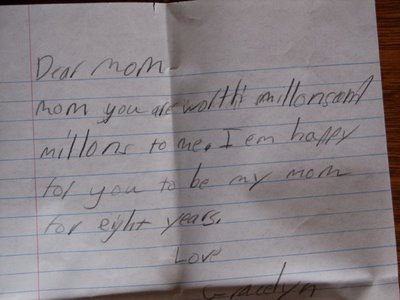 Dear Mom-
Mom you are worth millons and
millons to me. I em happy
for you to be my mom
for eight years.
Love
Gracelyn